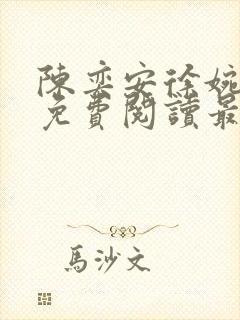 陳奕安徐婉
免費閱讀最
馬沙文